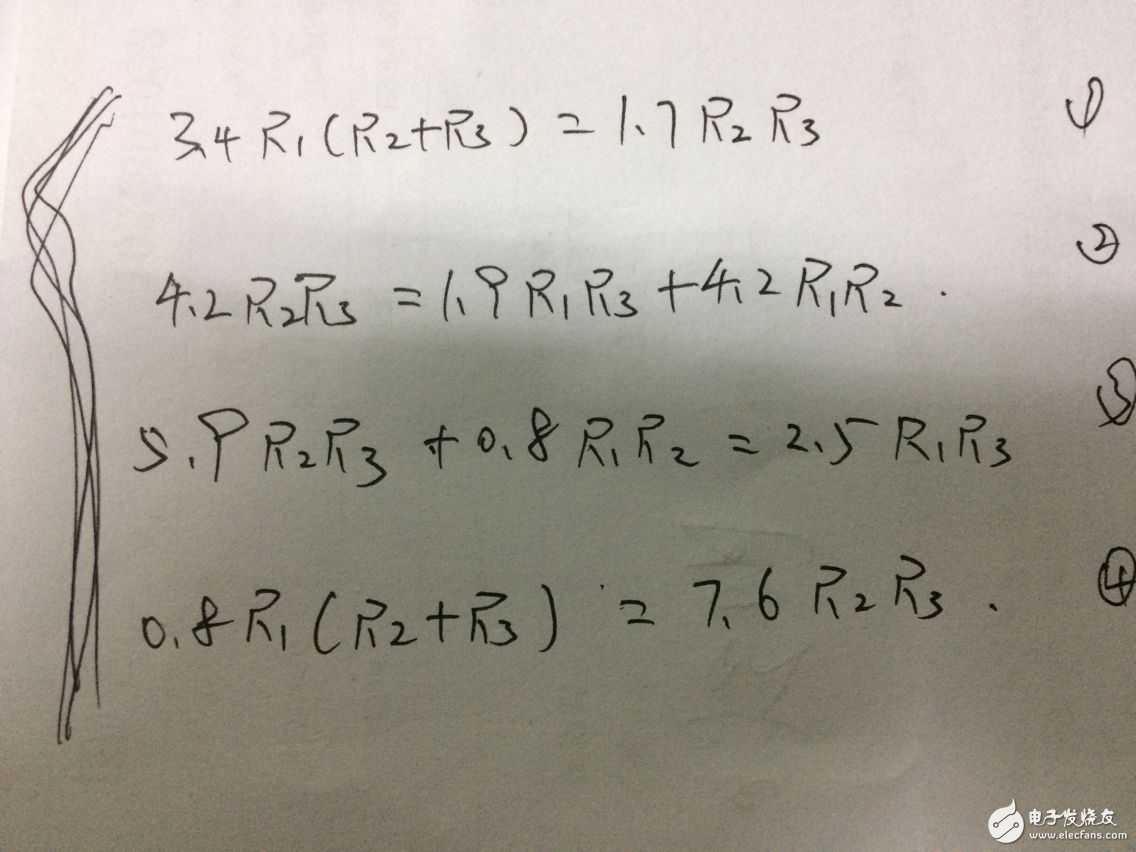 3.4 R1(R2+R3) = 1.7 R2 R3 ①
4.2 R2R3 = 1.9 R1R3 + 4.2 R1R2 . ②
5.9 R2R3 + 0.8 R1R2 = 2.5 R1R3 ③
0.8 R1(R2+R3) = 7.6 R2 R3 . ④
电子发烧友
www.elecfans.com